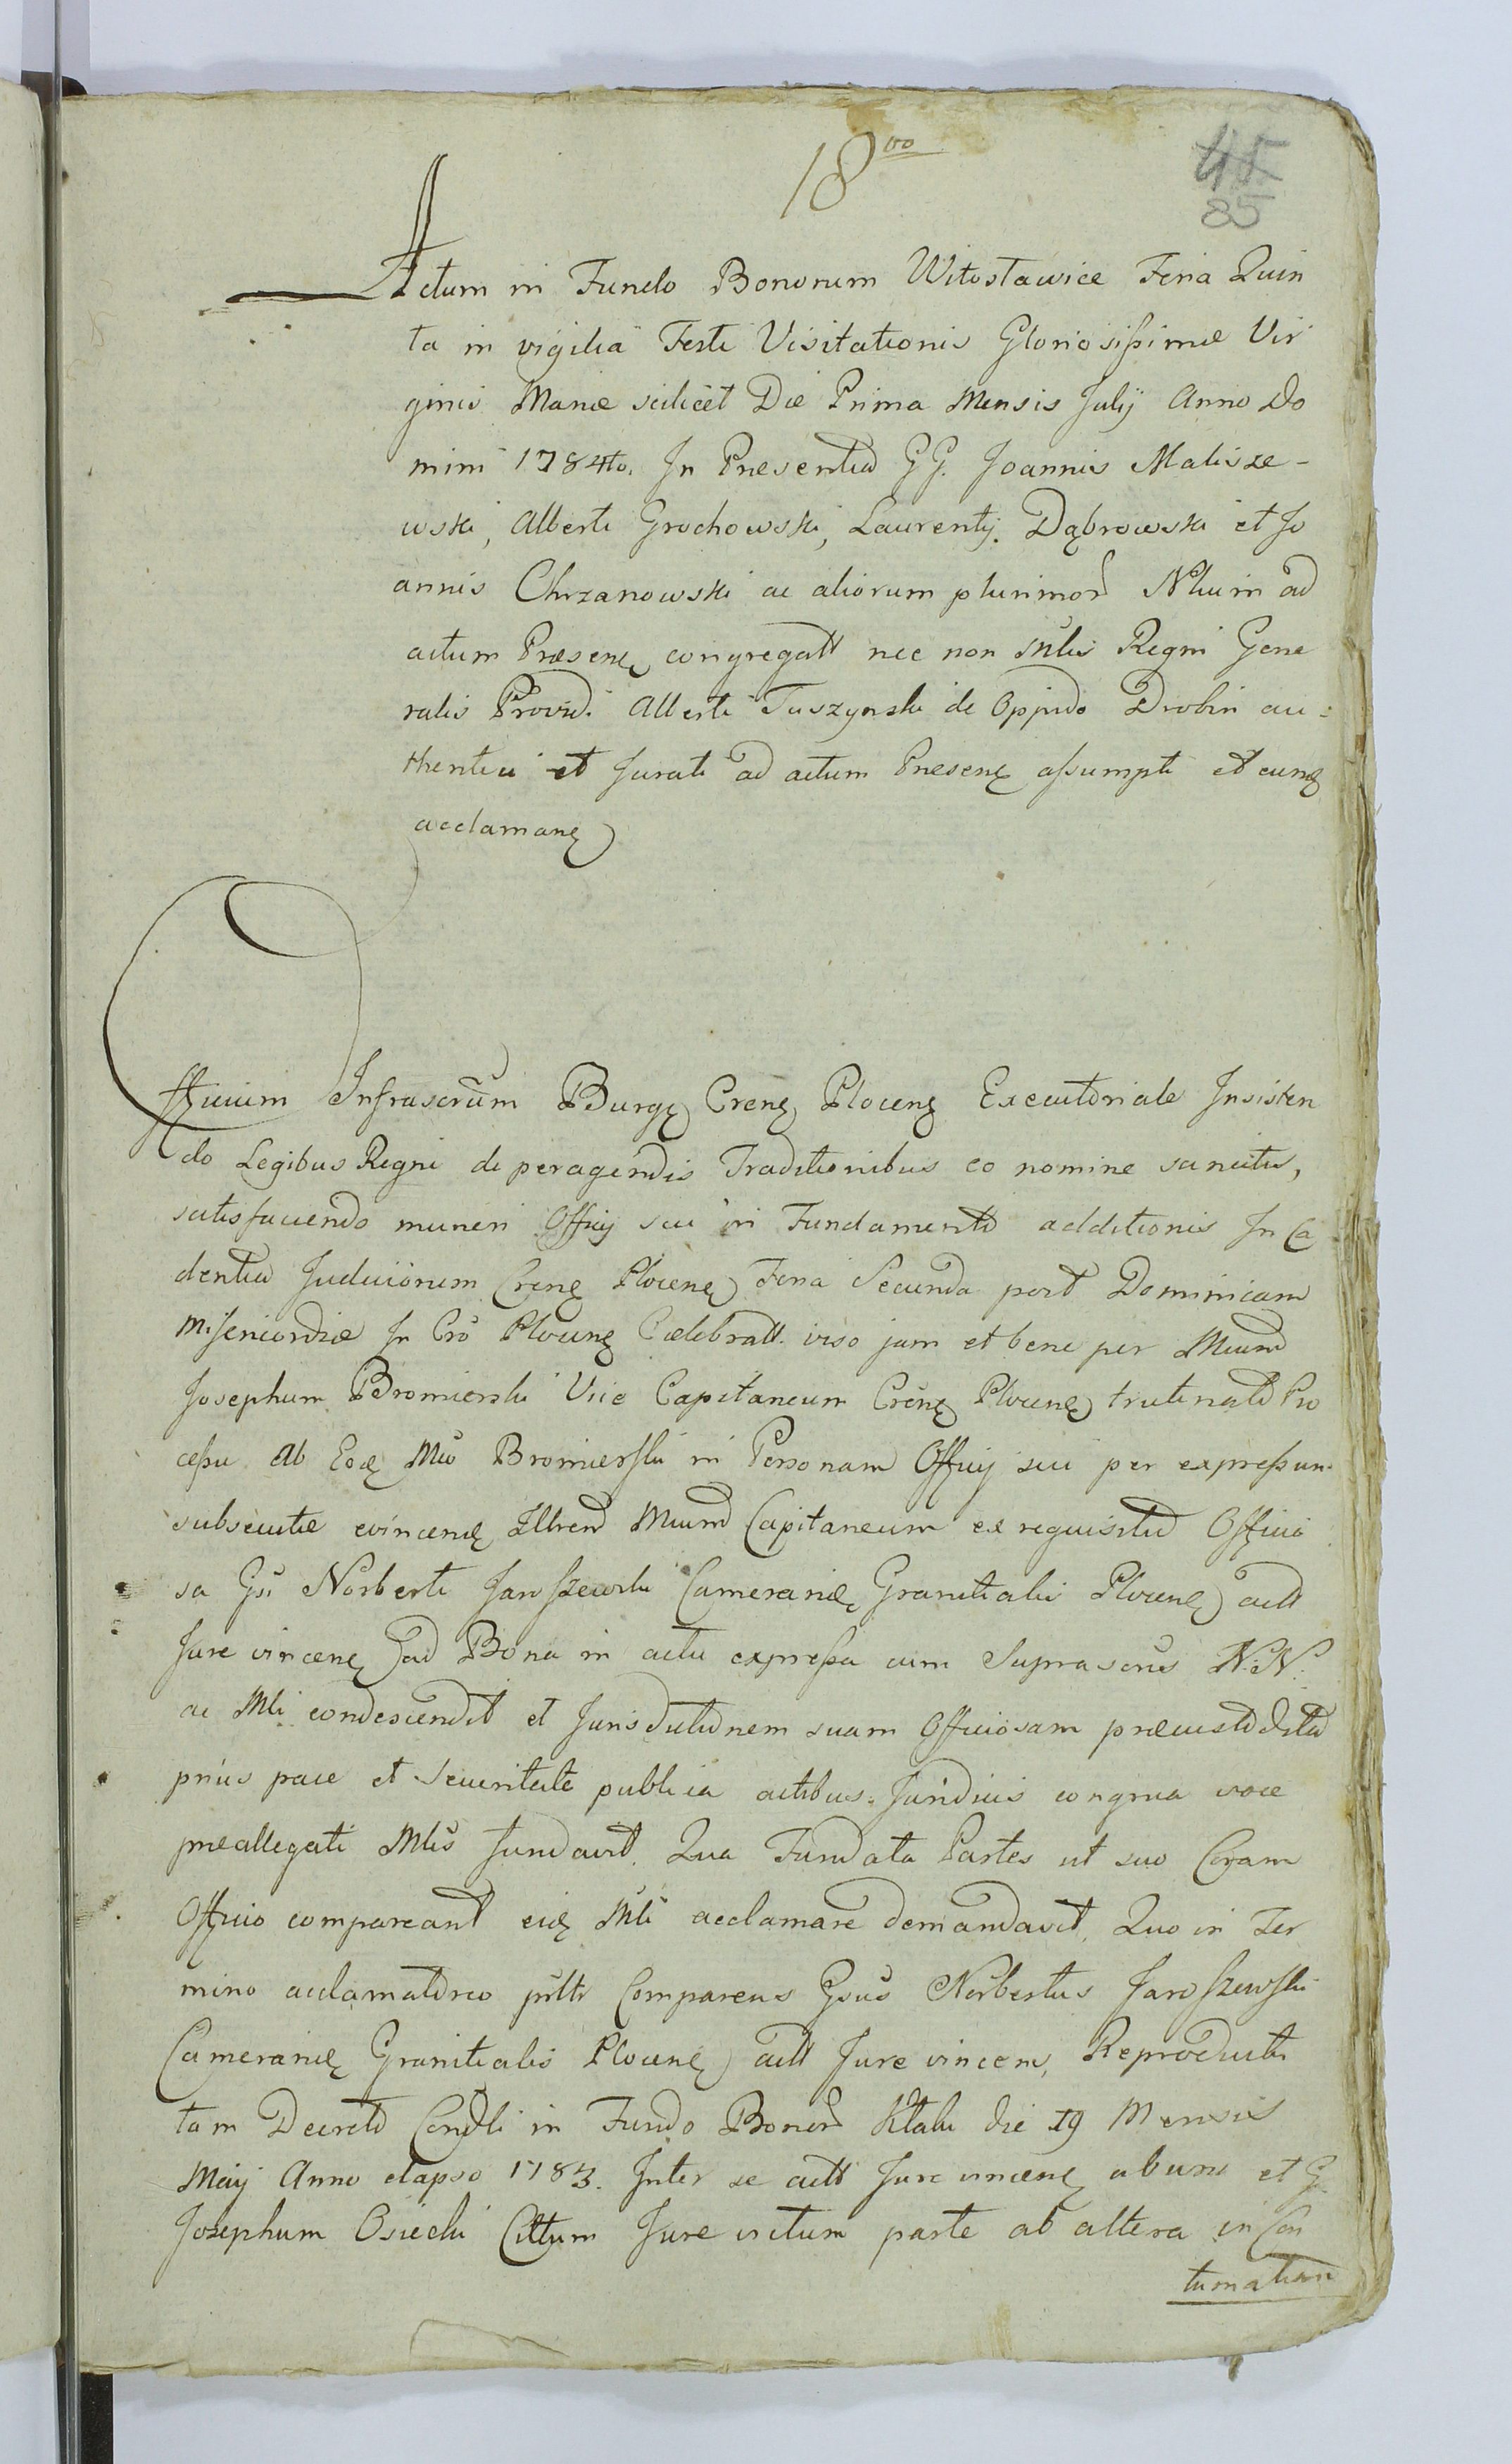 18vo
45
85
Actum in Fundo Bonorum Witosławice Feria Quin
ta in vigilia Festi Visitationis Gloriosissimæ Vir
ginis Mariæ scilicet Die Prima Mensis Julij Anno Do
mini 1784to. In Præsentia GG. Joannis Malisze-
wski, Alberti Grochowski, Laurentij Dąbrowski et Jo
annis Chrzanowski ac aliorum plurimor Nblium ad
actum Præsenę congregatt nec non Mlis Regni Gene
ralis Providi Alberti Tuszynski de Oppido Drobin au-
thentici et Jurati ad actum Præsenę assumpti et eunę
acclamanę
Officium Infrascrum Burgę Crenę Plocenę Executoriale Insisten
do Legibus Regni de peragendis Traditionibus eo nomine sancitis,
satisfaciendo muneri Officij sui in Fundamento additionis In Ca
dentia Judiciorum Crenę Plocenę Feria Secunda post Dominicam
Misericordiæ In Cro Plocenę Celebratt. viso jam et bene per Mcum
Josephum Bromierski Vice Capitaneum Crenę Plocenę trutinato Pro
cessu Ab Eodę Mco Bromierski in Personam Officij sui per expressum
subsecutæ evincenę Mcum Capitaneum ex requisitione Officio
sa Gsi Norberti Jaroszewski Camerarię Granitialis Plocenę actt
Jure vincenę ad Bona in actu expressa cum Suprascris N.N.
ac Mli condescendit et Jurisdictionem suam Officiosam præcustodita
prius pace et securitate publica actibus Juridicis congrua voce
præallegati Mlis fundavit. Qua Fundata Partes ut suo Coram
Officio compareant eidę Mli acclamare demandavit. Quo in Ter
mino acclamatorio psltr Comparens Gsus Norbertus Jaroszewski
Camerarię Granitialis Plocenę actt Jure vincens, Reproducti
tam Decreto Condli in Fundo Bonor die 19 Mensis
Maij Anno elapso 1783. Inter se actt Jure vincenę ab una et G.
Josephum Osiecki Cittum Jure victum parte ab altera in Con
tumatiam